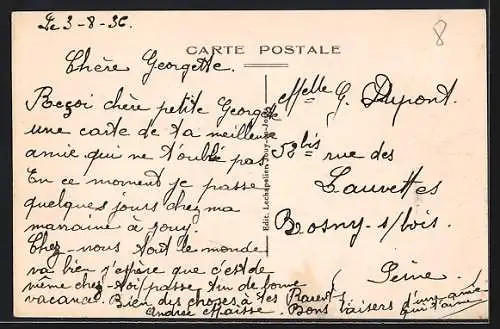 Le 3-8-36.
8
CARTE POSTALE
Chère Georgette.
Reçoi chère petite Georgette
une carte de ta meilleure
amie qui ne t'oublie pas.
En ce moment je passe
quelques jours chez ma
marraine à Jouy.
Chez-nous tout le monde
va bien j'espère que c'est de
même chez-toi passe une bonne
vacance. Bien des choses à tes Parents
Andrée
Bons baisers d'une amie
qui t'aime
Edit. Lechapelier, Jouy-
Melle G. Dupont.
52bis rue des
Fauvettes
Rosny-s/bois.
Seine